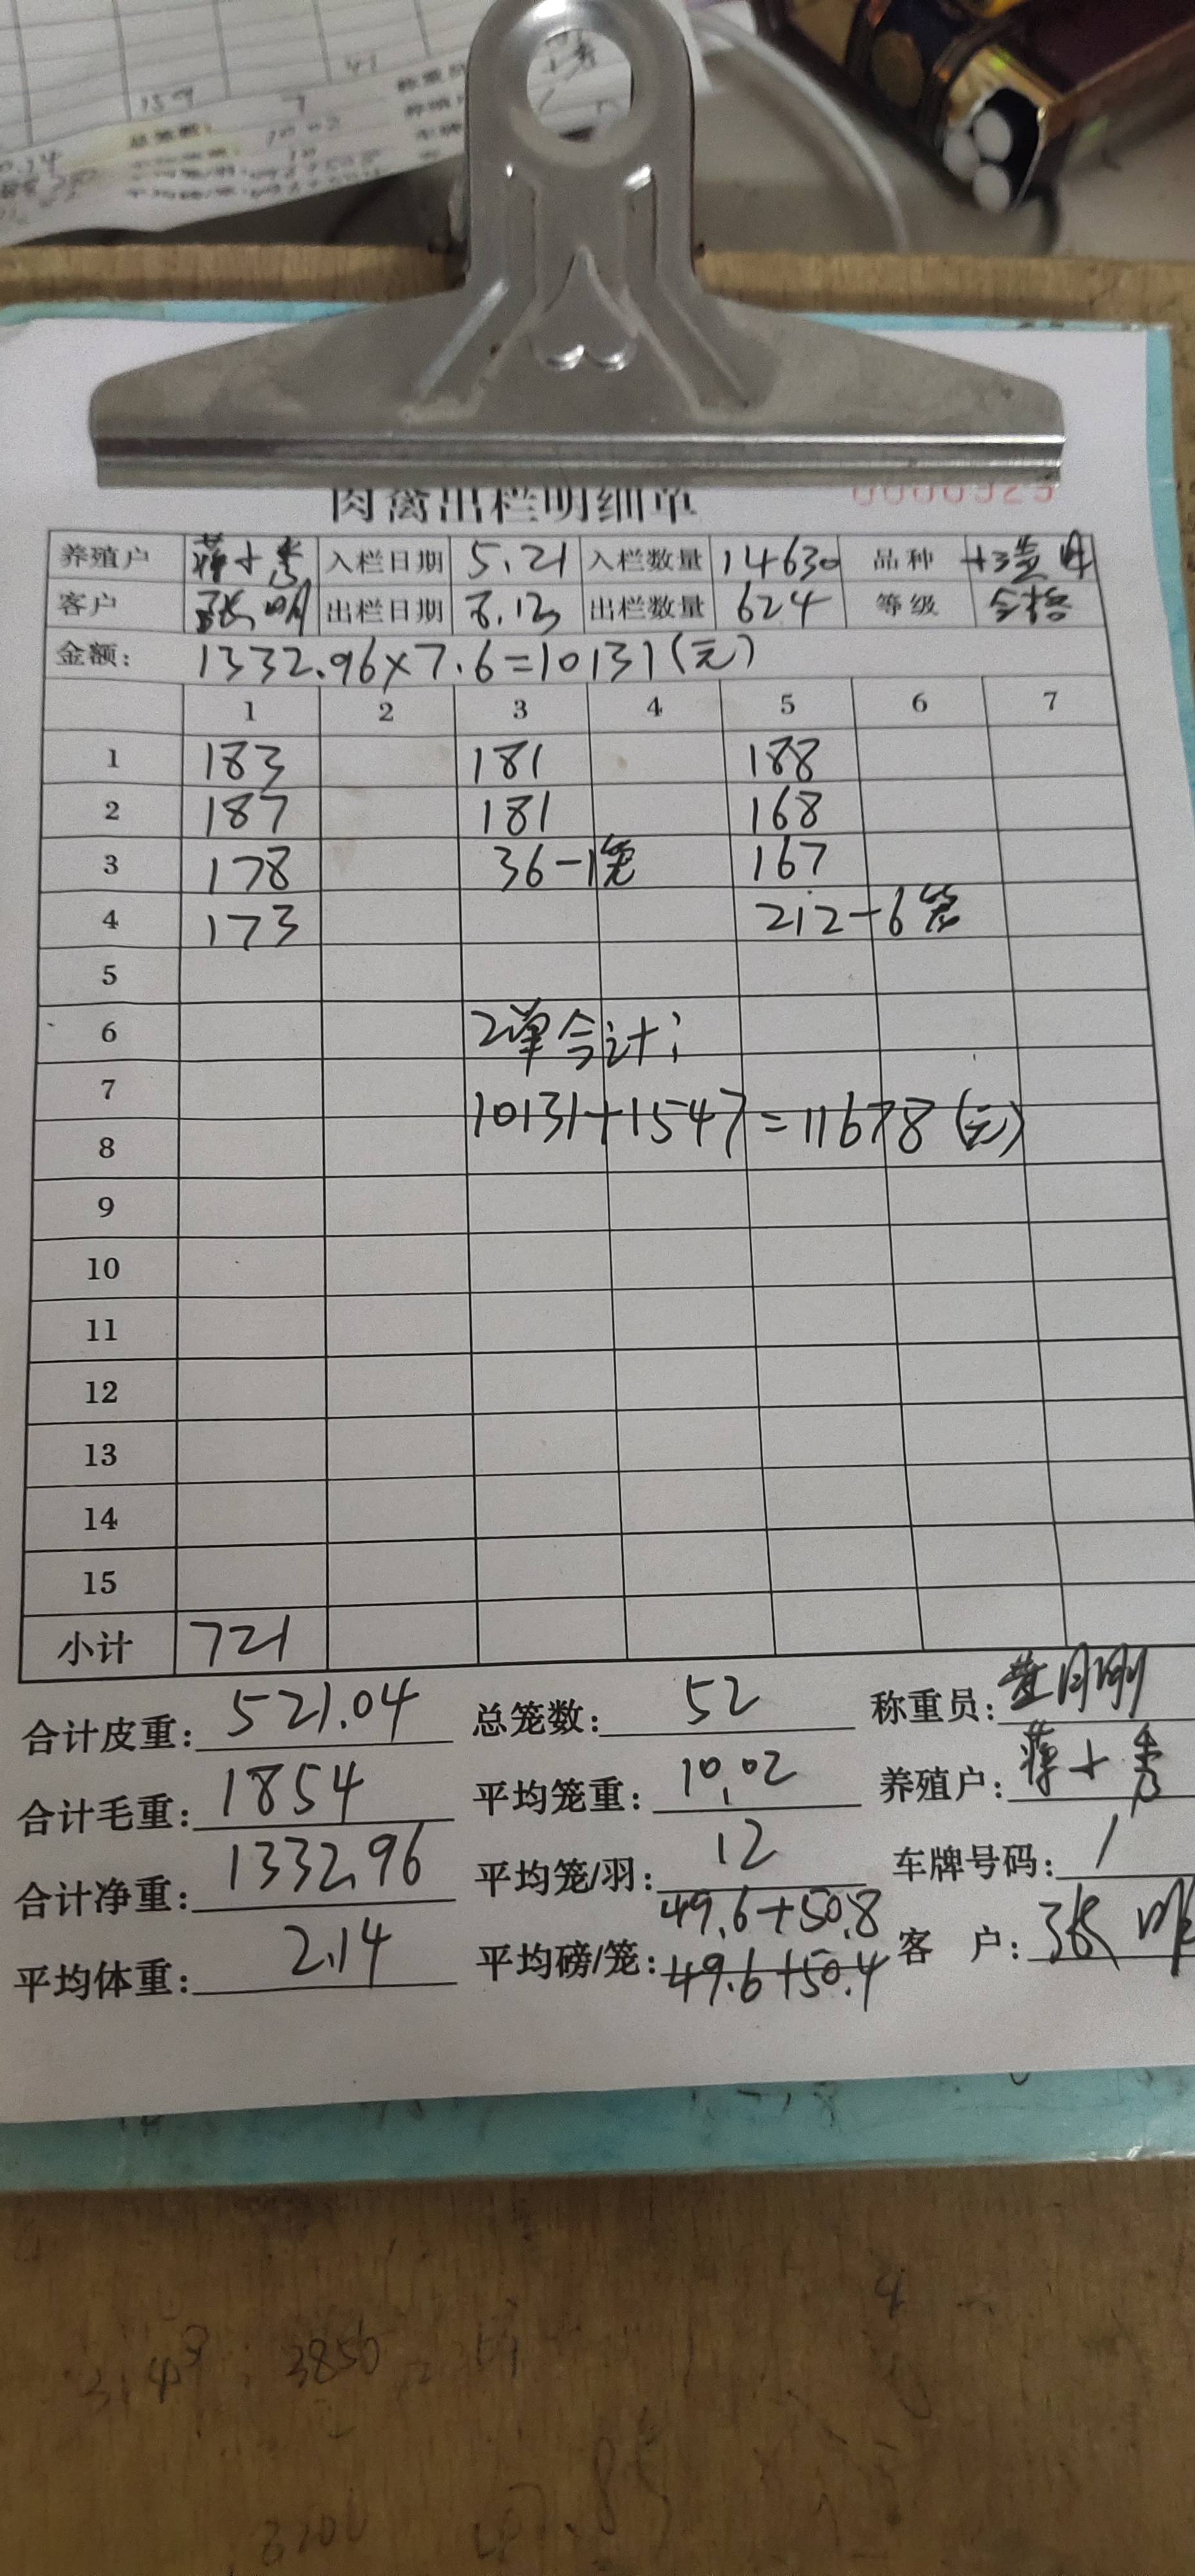 肉禽出栏明细单 0000929
养殖户 蒋十秀 入栏日期 5.21 入栏数量 14630 品种
客户 张明 出栏日期 8.13 出栏数量 624 等级
金额: 1332.96×7.6=10131(元)
1 2 3 4 5 6 7
1 183 181 188
2 187 181 168
3 178 36-1笼 167
4 173 212-6笼
5
6 2单合计:
7
10131+1547=11678(元)
8
9
10
11
12
13
14
15
小计 721
合计皮重: 521.04 总笼数: 52 称重员:
合计毛重: 1854 平均笼重: 10.02 养殖户: 蒋十秀
合计净重: 1332.96 平均笼/羽: 12 车牌号码: 1
49.6+50.8
平均体重: 2.14 平均磅/笼: 49.6+50.4 客 户: 张明